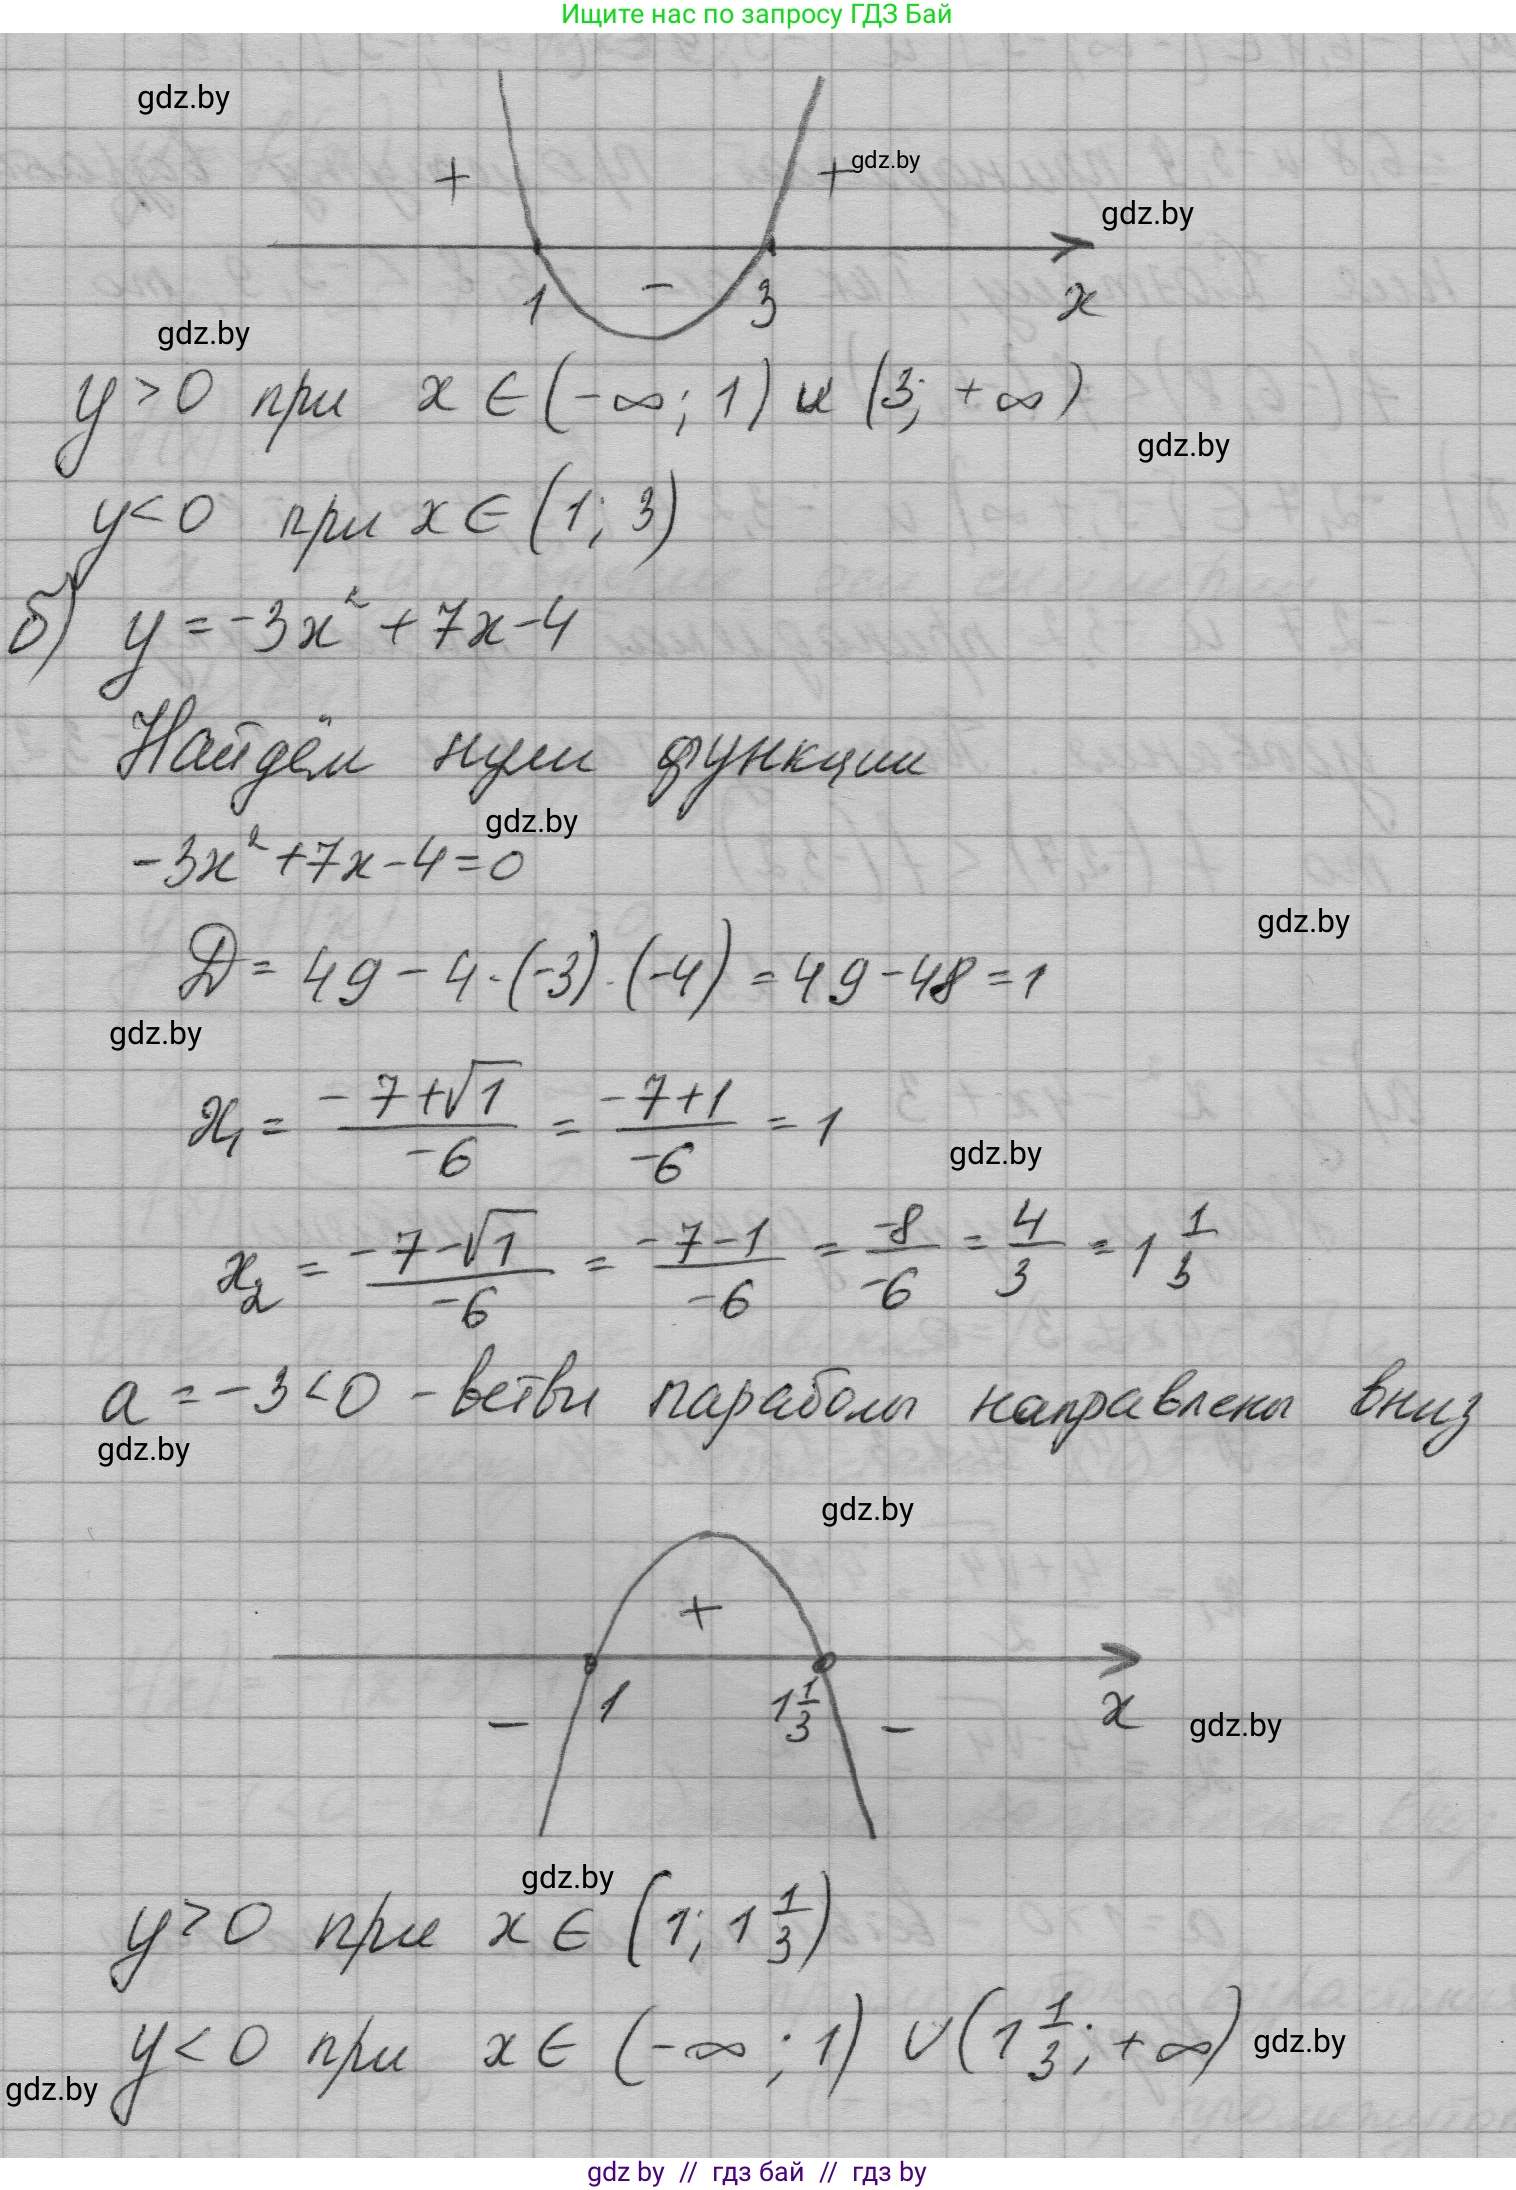 Ищите нас по запросу ГДЗ Бай
gdz.by
+ − +
gdz.by
gdz.by
1 3 x
gdz.by
y > 0 при x ∈ (-∞; 1) и (3; +∞)
gdz.by
y < 0 при x ∈ (1; 3)
б) y = -3x² + 7x - 4
Найдём нули функции
gdz.by
-3x² + 7x - 4 = 0
gdz.by
D = 49 - 4·(-3)·(-4) = 49 - 48 = 1
gdz.by
x₁ = (-7+√1)/(-6) = (-7+1)/(-6) = 1
gdz.by
x₂ = (-7-√1)/(-6) = (-7-1)/(-6) = (-8)/(-6) = 4/3 = 1 1/3
a = -3 < 0 - ветви параболы направлены вниз
gdz.by
gdz.by
+
− 1 1 1/3 − x
gdz.by
gdz.by
y > 0 при x ∈ (1; 1 1/3)
y < 0 при x ∈ (-∞; 1) ∪ (1 1/3; +∞)
gdz.by
gdz.by
gdz by // гдз бай // гдз by